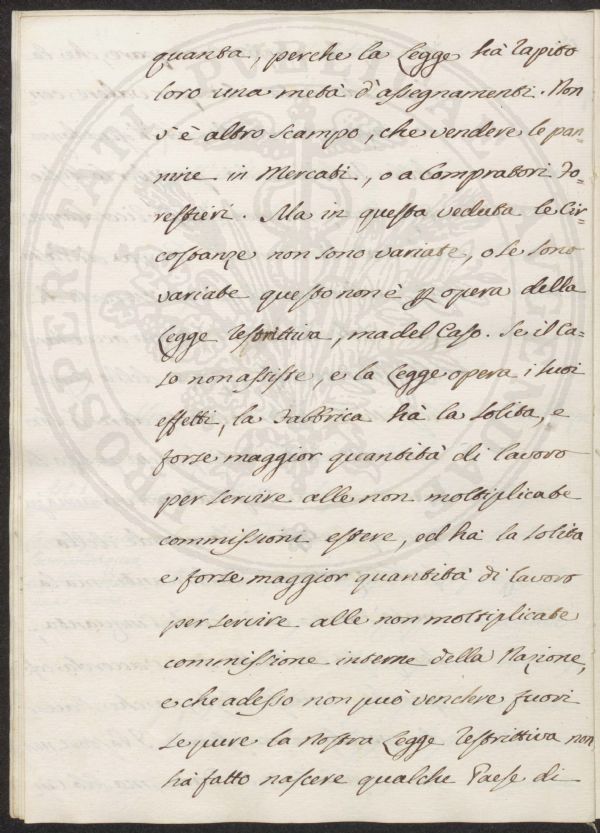 quanta, perche la Legge hà rapito
loro una metà d'assegnamenti. Non
v'è altro scampo, che vendere le pan=
nine in Mercati, o a Compratori Fo=
restieri. Ma in questa veduta le Cir=
costanze non sono variate, o se sono
variate questo non è p opera della
Legge restrittiva, ma del Caso. Se il Ca=
so non assiste, e la Legge opera i suoi
effetti, la Fabbrica hà la solita, e
forse maggior quantità di lavoro
per servire alle non moltiplicate
commissioni estere, ed hà la solita
e forse maggior quantità di lavoro
per servire alle non moltiplicate
commissione interne della Nazione,
e che adesso non può vendere fuori
se pure la nostra Legge restrittiva non
hà fatto nascere qualche Paese di
PROSPERITATI PUBLICAE